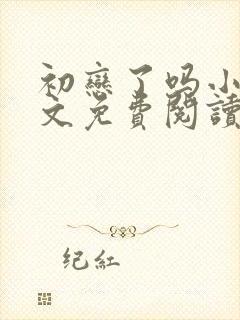 初戀了吗小
文免費閱讀
纪紅